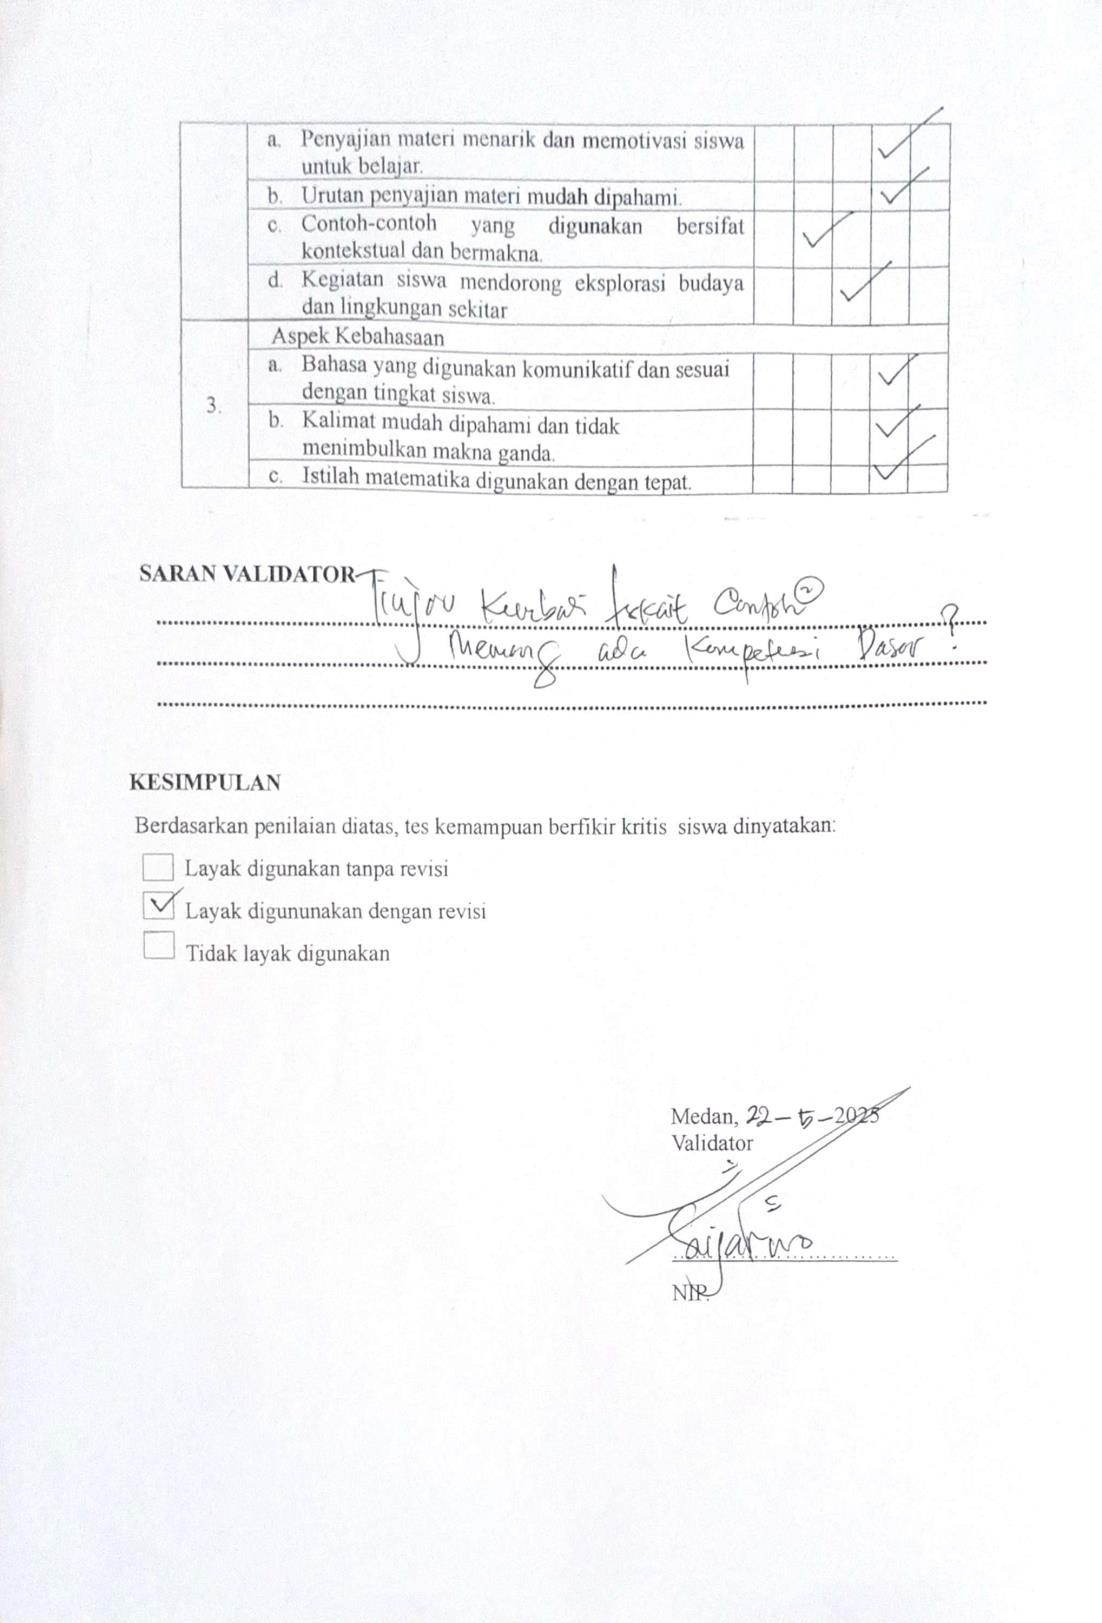 a. Penyajian materi menarik dan memotivasi siswa
untuk belajar.
b. Urutan penyajian materi mudah dipahami.
c. Contoh-contoh yang digunakan bersifat
kontekstual dan bermakna.
d. Kegiatan siswa mendorong eksplorasi budaya
dan lingkungan sekitar
3.
Aspek Kebahasaan
a. Bahasa yang digunakan komunikatif dan sesuai
dengan tingkat siswa.
b. Kalimat mudah dipahami dan tidak
menimbulkan makna ganda.
c. Istilah matematika digunakan dengan tepat.
SARAN VALIDATOR
Tinjau Kembali terkait Contoh ②
Memang ada Kompetensi Dasar ?
KESIMPULAN
Berdasarkan penilaian diatas, tes kemampuan berfikir kritis siswa dinyatakan:
Layak digunakan tanpa revisi
Layak digununakan dengan revisi
Tidak layak digunakan
Medan, 22-5-2025
Validator
Saijarwo
NIP.